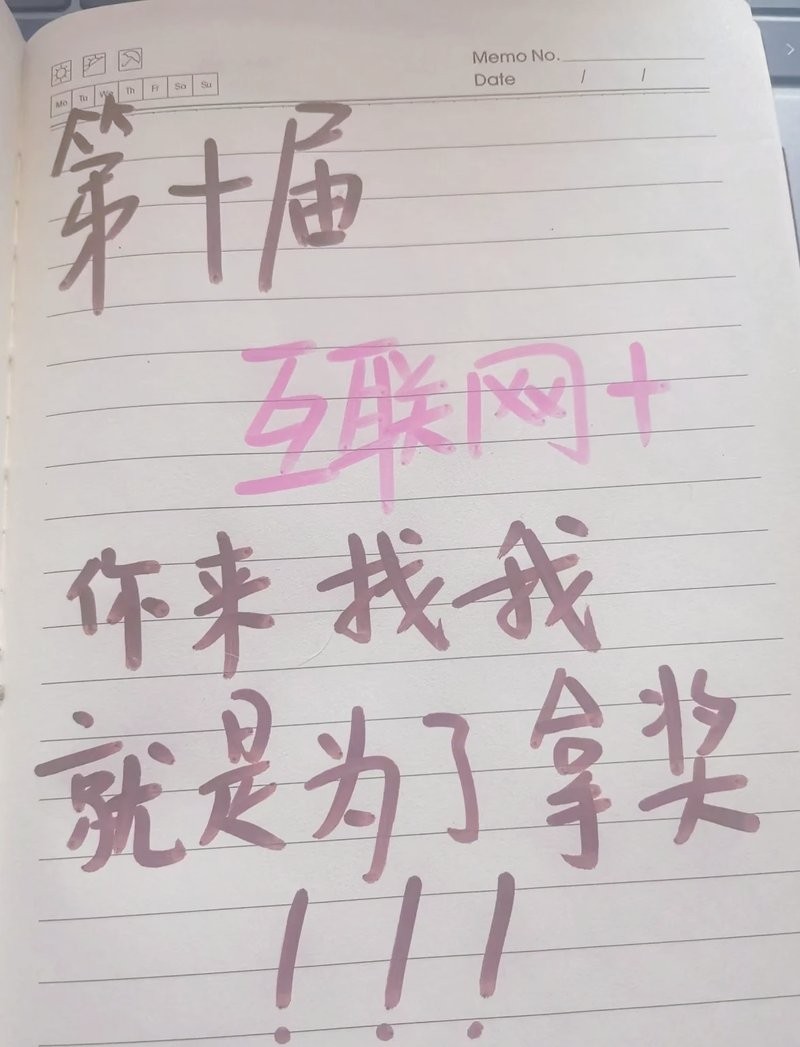 Memo No.
Date / /
Mo Tu We Th Fr Sa Su
第十届
互联网+
你来找我
就是为了拿奖
!!!